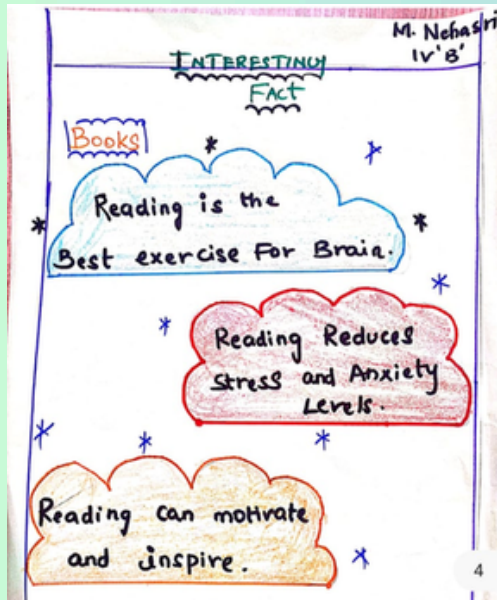 M. Nehasri
IV 'B'
INTERESTING
FACT
Books
Reading is the
Best exercise For Brain.
Reading Reduces
Stress and Anxiety
Levels.
Reading can motivate
and inspire.
4